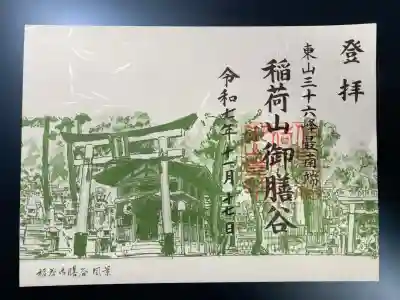 登拝
東山三十六峰最南端
稲荷山御膳谷
令和七年十一月十七日
稲荷山御膳谷 風景